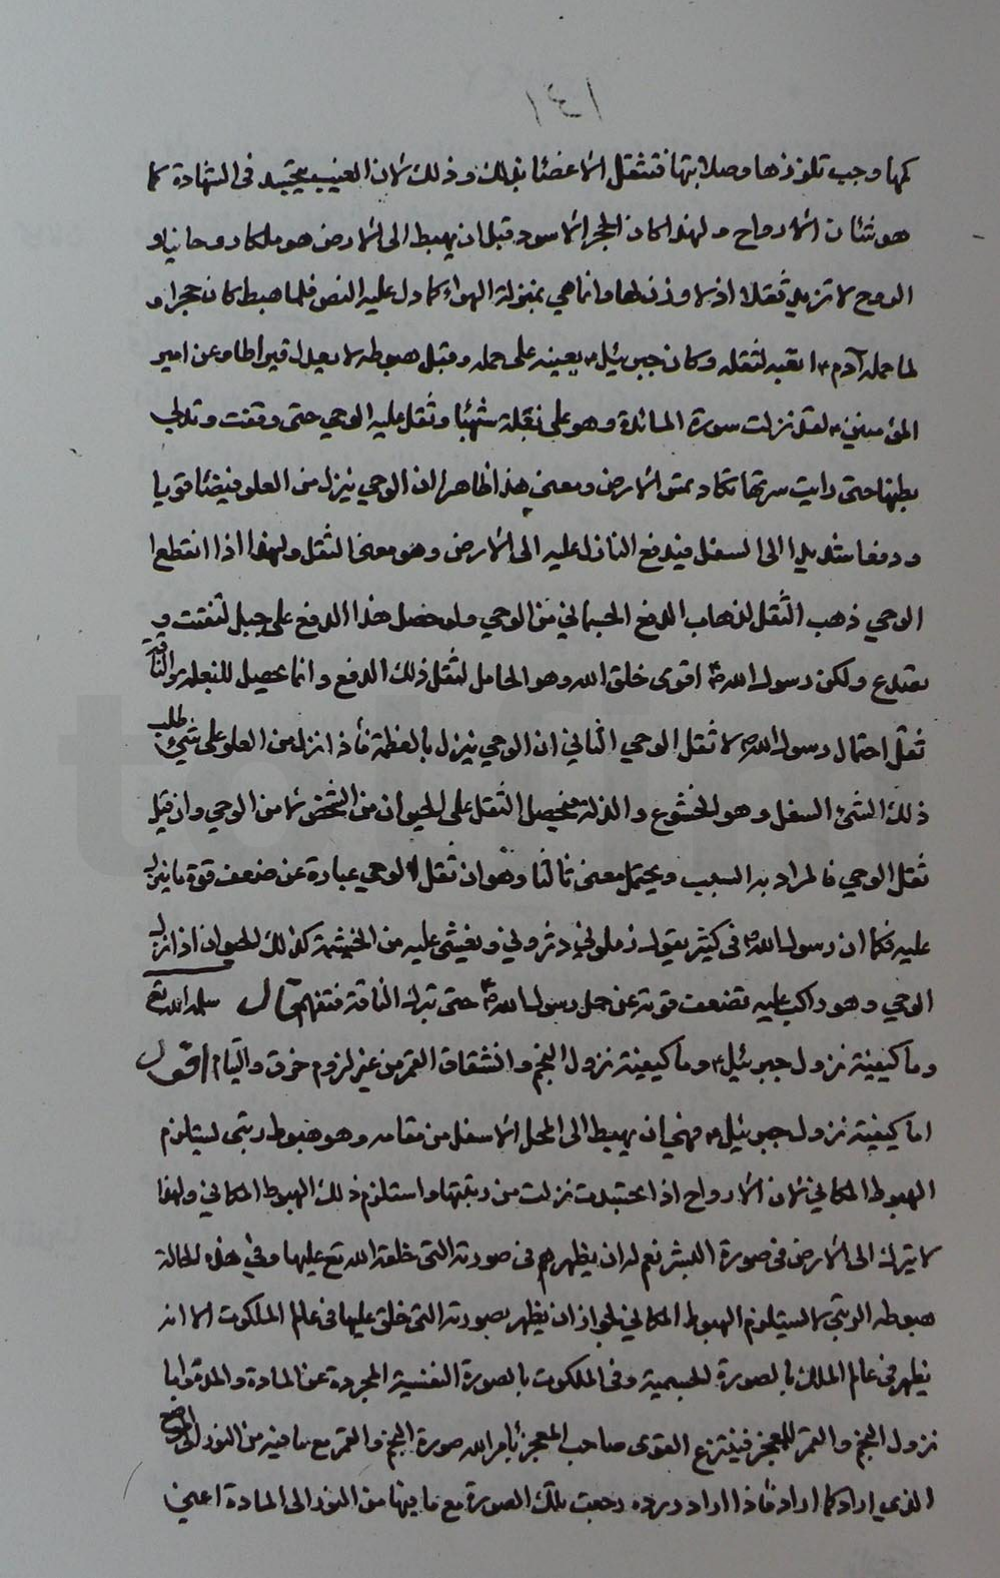 ١٤١
كمها وجب تلززها وصلابتها فتثقل الأعضاء بذلك وذلك لأن الغيب يتجسد في الشهادة كما
هو شأن الأرواح ولهذا كان الحجر الأسود قبل ان يهبط الى الأرض هو ملكا روحانيا و
الروح لا تزيد ثقلا اذ لا وزن لها وانما هي بمنزلة الهواء كما دل عليه النص فلما هبط كان حجرا و
لما حمله آدم ع اتعبه لثقله وكان جبرئيل ع يعينه على حمله وقبل هبوطه لا يعدل قيراطا وعن امير
المؤمنين ع لقد نزلت سورة المائدة وهو على بغلة شهبا وثقل عليه الوحي حتى وقفت وتدلى
بطنها حتى رايت سرتها تكاد تمس الأرض ومعنى هذا ظاهرا ان الوحي ينزل من العلو فيضا قويا
ودفعا شديدا الى السفل فيدفع النازل عليه الى الأرض وهو معنى الثقل ولهذا اذا انقطع
الوحي ذهب الثقل لذهاب الدفع الجسماني من الوحي ولو حصل هذا الدفع على جبل لتفتت و
تصدع ولكن رسول الله ص اقوى خلق الله وهو الحامل لثقل ذلك الدفع وانما يحصل للبغلة والناقة
ثقل احتمال رسول الله ص لا ثقل الوحي الثاني ان الوحي ينزل بالعظمة فاذا نزل من العلو على شيء طلب
ذلك الشيء السفل وهو الخشوع والذلة فيحصل الثقل على الحيوان من الشخص لا من الوحي وان قيل
ثقل الوحي فالمراد به السبب ويحتمل معنى ثالثا وهو ان ثقل الوحي عبارة عن ضعف قوة ما ينزل
عليه فكما ان رسول الله ص في كثير يقول زملوني دثروني ويغشى عليه من الخشية كذلك الحيوان اذا نزل
الوحي وهو راكب عليه تضعف قوته عن حمل رسول الله ص حتى تبرك الناقة فتفهم قال سلمه الله تع
وما كيفية نزول جبرئيل ع وما كيفية نزول النجم وانشقاق القمر من غير لزوم خرق والتيام اقول
اما كيفية نزول جبرئيل ع فهي ان يهبط الى المحل الأسفل من مقامه وهو هبوط رتبي يستلزم
الهبوط المكاني لأن الأرواح اذا تجسدت نزلت من رتبتها واستلزم ذلك الهبوط المكاني ولهذا
لا ينزل الى الأرض في صورة البشر نعم له ان يظهر في صورته التي خلقه الله تع عليها وفي هذه الحالة
هبوطه الرتبي لا يستلزم الهبوط المكاني لجواز ان يظهر بصورته التي خلق عليها في عالم الملكوت الا انه
يظهر في عالم الملك بالصورة الجسمية وفي الملكوت بالصورة النفسية المجردة عن المادة والمدة واما
نزول النجم والقمر للمعجز فينتزع القوى صاحب المعجز بأمر الله صورة النجم والقمر مع ما فيه من النور الى الموضع
الذي اراد كما اراد فاذا اراد رده رجعت بتلك الصورة مع ما فيها من النور الى المادة اعني